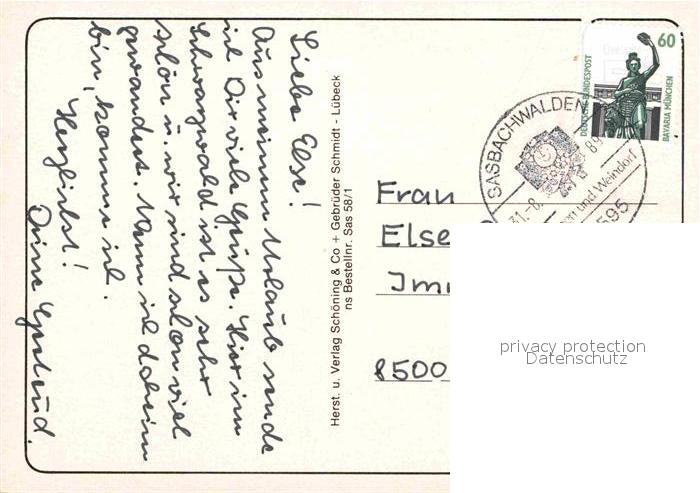 Liebe Else!
Aus meinem Urlaub sende
ich Dir viele Grüße. Hier im
Schwarzwald ist es sehr
schön u. wir sind schon viel
gewandert. Wenn ich daheim
bin, komme ich.
Herzlichst!
Deine
Herst. u. Verlag Schöning & Co + Gebrüder Schmidt - Lübeck
ns Bestellnr. Sas 58/1
60
DEUTSCHE BUNDESPOST
BAVARIA MÜNCHEN
SASBACHWALDEN
31.-8. 89
und Weindorf
595
Frau
Else
Im
8500
privacy protection
Datenschutz